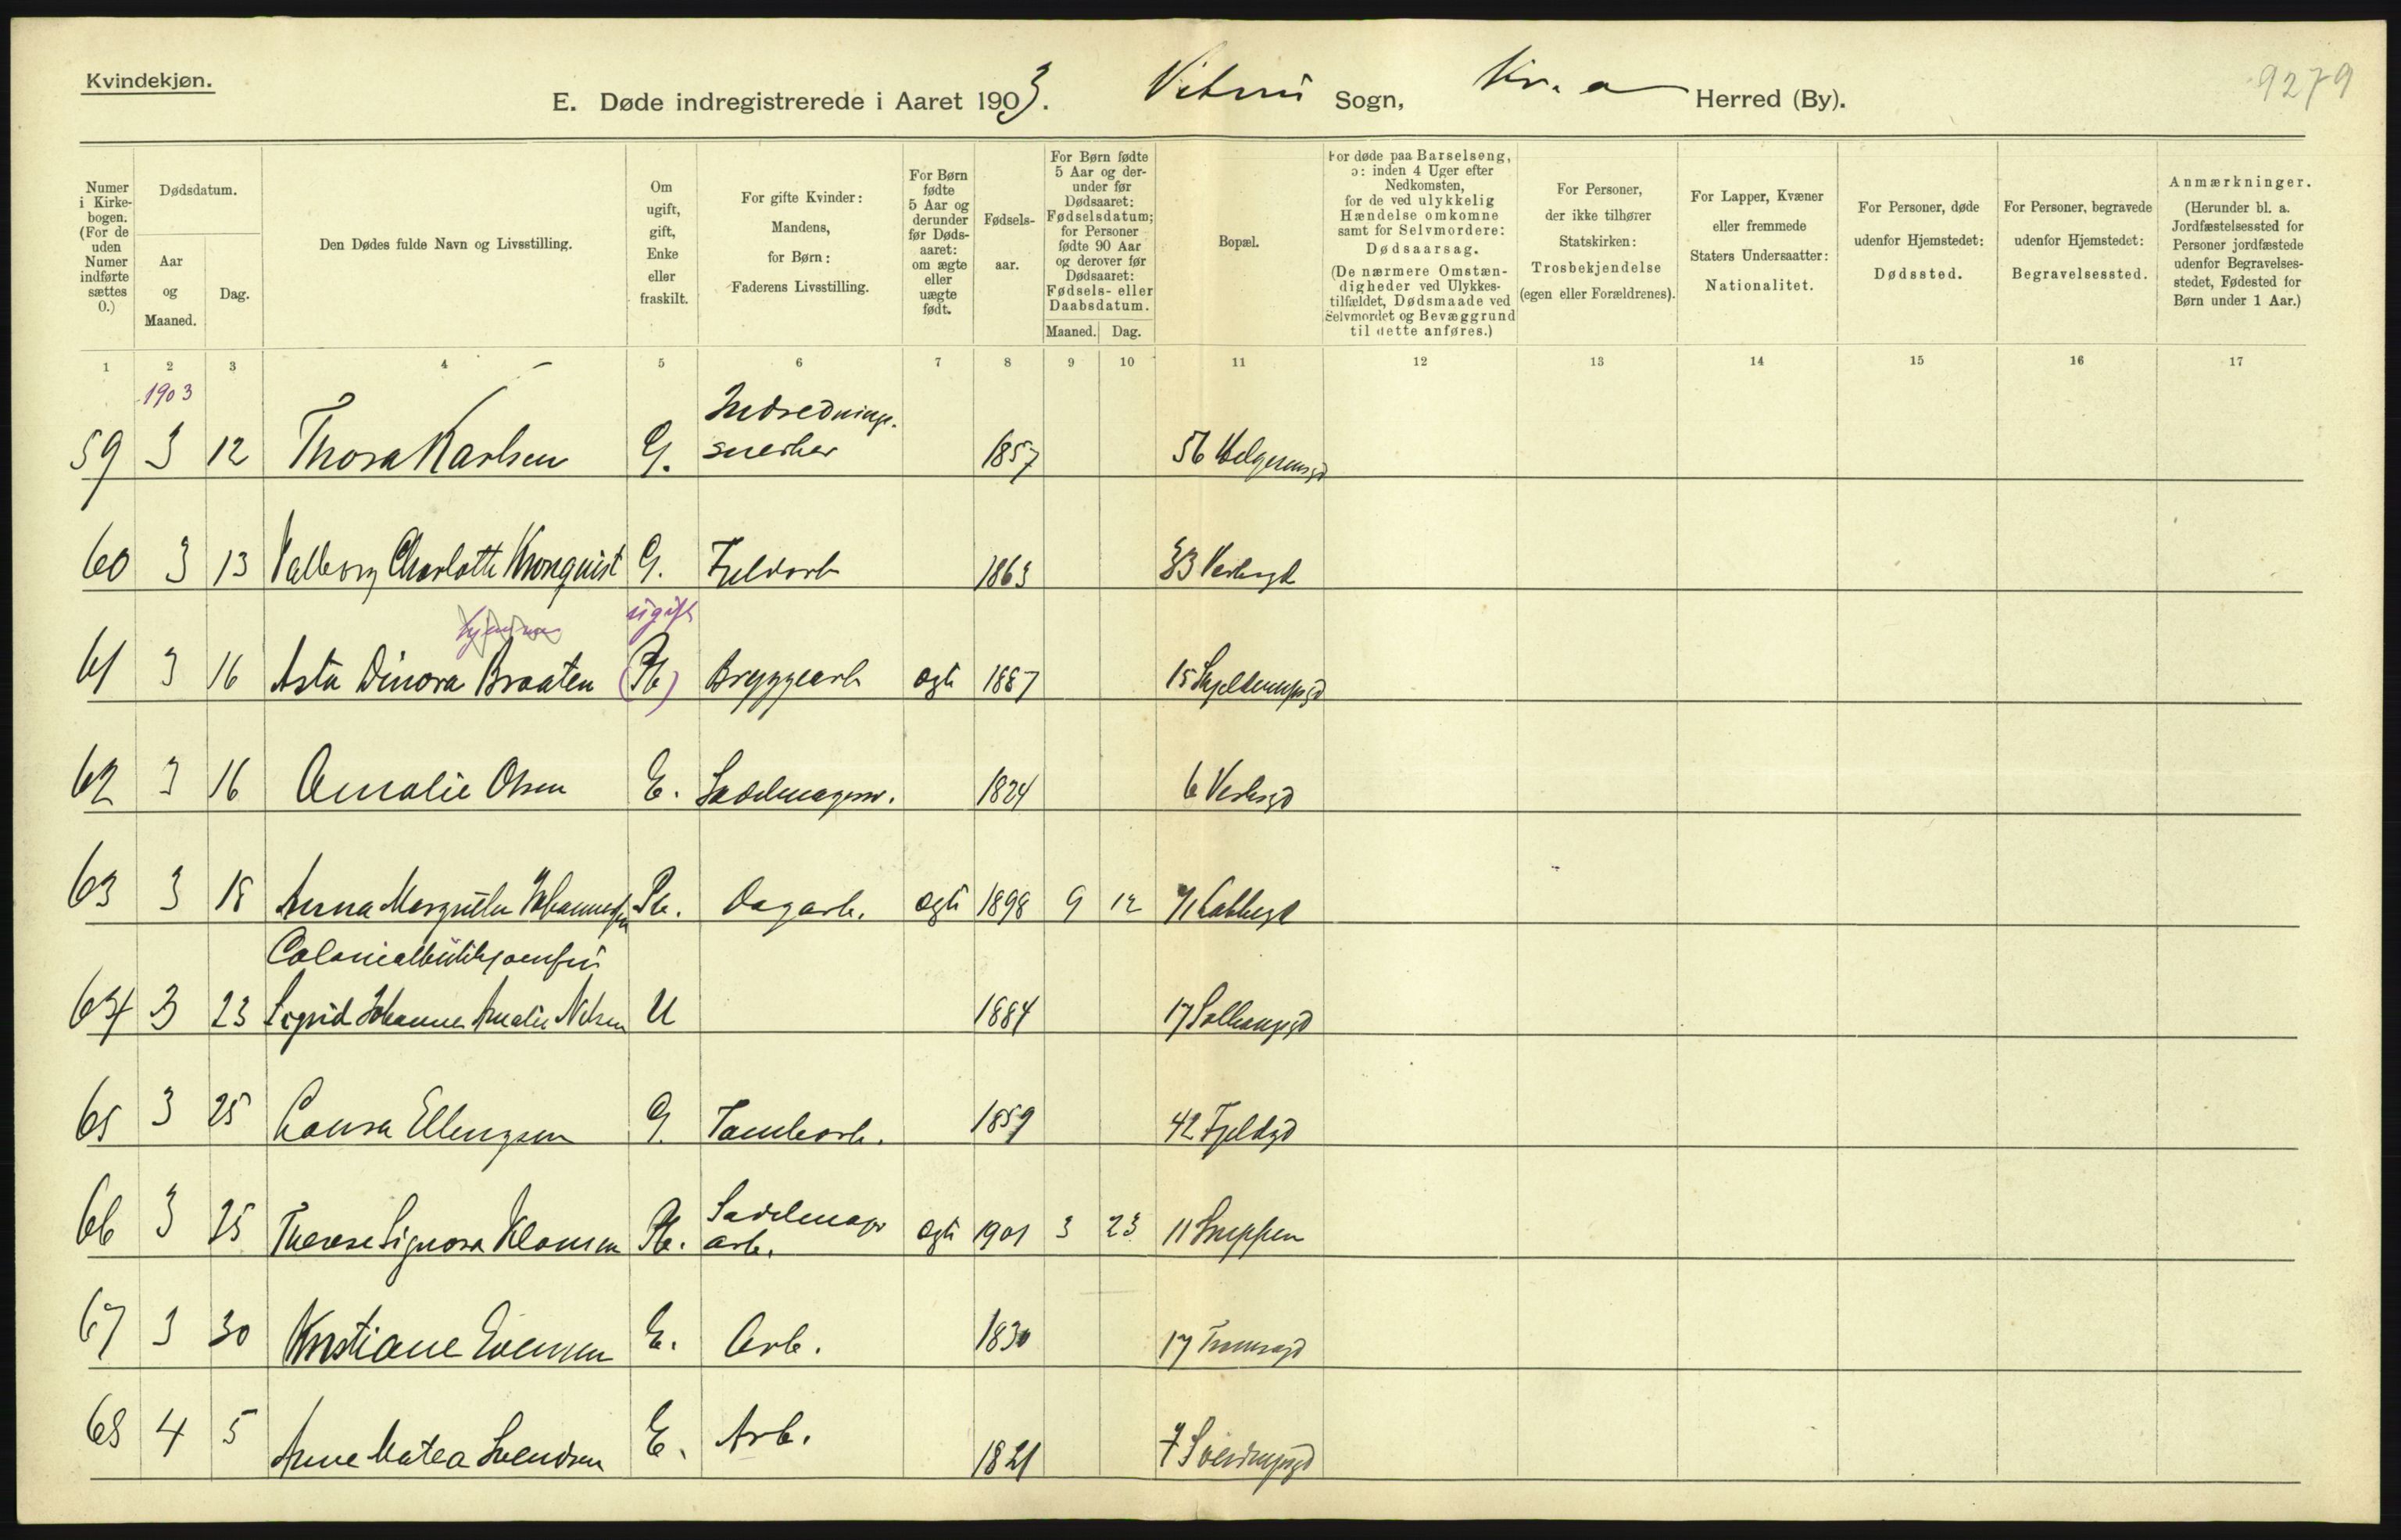 Kvindekjøn.
E. Døde indregistrerede i Aaret 1903. Sogn, Kr.a Herred (By).
9279
Numer i Kirke-bogen. (For de uden Numer indførte sættes 0.)
Dødsdatum.
Aar og Maaned.
Dag.
Den Dødes fulde Navn og Livsstilling.
Om ugift, gift, Enke eller fraskilt.
For gifte Kvinder: Mandens, for Børn: Faderens Livsstilling.
For Børn fødte 5 Aar og derunder før Døds-aaret: om ægte eller uægte født.
Fødsels-aar.
For Børn fødte 5 Aar og der-under før Dødsaaret: Fødselsdatum; for Personer fødte 90 Aar og derover før Dødsaaret: Fødsels- eller Daabsdatum.
Maaned. Dag.
Bopæl.
For døde paa Barselseng, ɔ: inden 4 Uger efter Nedkomsten, for de ved ulykkelig Hændelse omkomne samt for Selvmordere: Dødsaarsag. (De nærmere Omstæn-digheder ved Ulykkes-tilfældet, Dødsmaade ved Selvmordet og Bevæggrund til dette anføres.)
For Personer, der ikke tilhører Statskirken: Trosbekjendelse (egen eller Forældrenes).
For Lapper, Kvæner eller fremmede Staters Undersaatter: Nationalitet.
For Personer, døde udenfor Hjemstedet: Dødssted.
For Personer, begravede udenfor Hjemstedet: Begravelsessted.
Anmærkninger. (Herunder bl. a. Jordfæstelsessted for Personer jordfæstede udenfor Begravelses-stedet, Fødested for Børn under 1 Aar.)
1 2 3 4 5 6 7 8 9 10 11 12 13 14 15 16 17
1903
59 3 12 Thora Karlsen G. Indrednings. snedker 1857 56 Helgesensgd
60 3 13 Valborg Charlotte Kronquist G. Fjeldarb 1863 Verksgd
ugift
61 3 16 Asta Dinora Braaten Bryggearb ægte 1887 15
62 3 16 Amalie Olsen E. Sadelmagersv. 1824 6 Verksgd
63 3 18 Anna Margrethe Johannesen Pb. Dagarb. ægte 1898 9 12
Colonialbutikjomfru
64 3 23 Sigrid Johanne Amalie Nilsen U 1884 17
65 3 25 Laura Ellingsen G. Tombarb. 1859 42 Fjeldgd
66 3 25 Therese Signora Klausen Pb. Sadelmager arb. ægte 1901 3 23 11
67 3 30 Kristiane Evensen E. Arb. 1830 17
68 4 5 Anne Matea Svendsen E. Arb. 1821 7 Sverdrupsgd